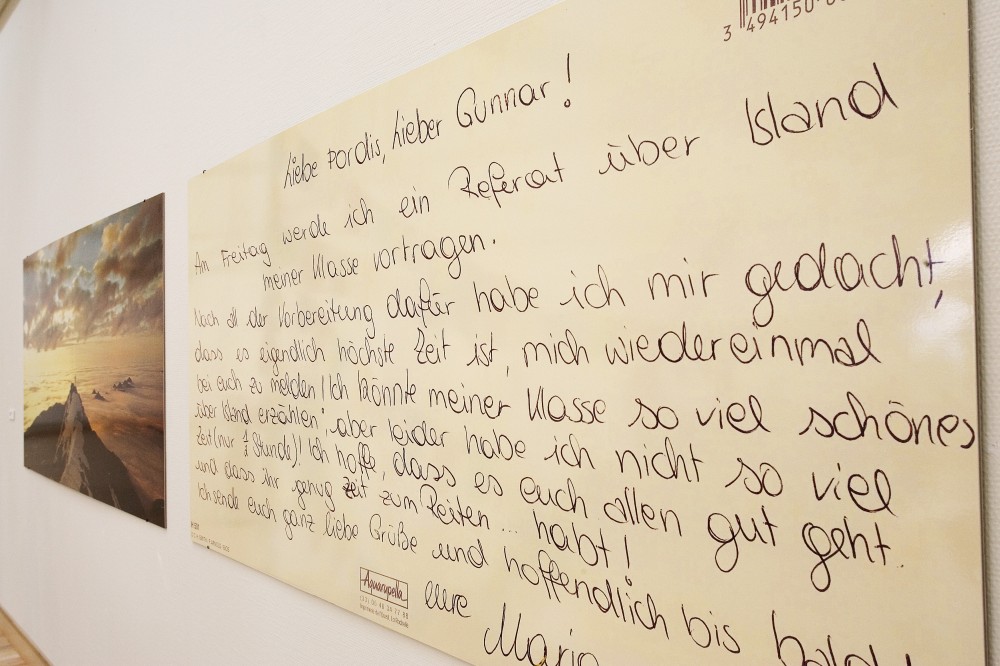 3 494150 0
Liebe Þordis, lieber Gunnar!
Am Freitag werde ich ein Referat über Island
meiner Klasse vortragen.
Nach all der Vorbereitung dafür habe ich mir gedacht,
dass es eigendlich höchste Zeit ist, mich wiedereinmal
bei euch zu melden! Ich könnte meiner Klasse so viel schönes
über Island erzählen, aber leider habe ich nicht so viel
Zeit (nur ½ Stunde)! Ich hoffe, dass es euch allen gut geht
und dass ihr genug Zeit zum Reiten ... habt!
Ich sende euch ganz liebe Grüße und hoffendlich bis bald!
eure Maria
Aquarupella